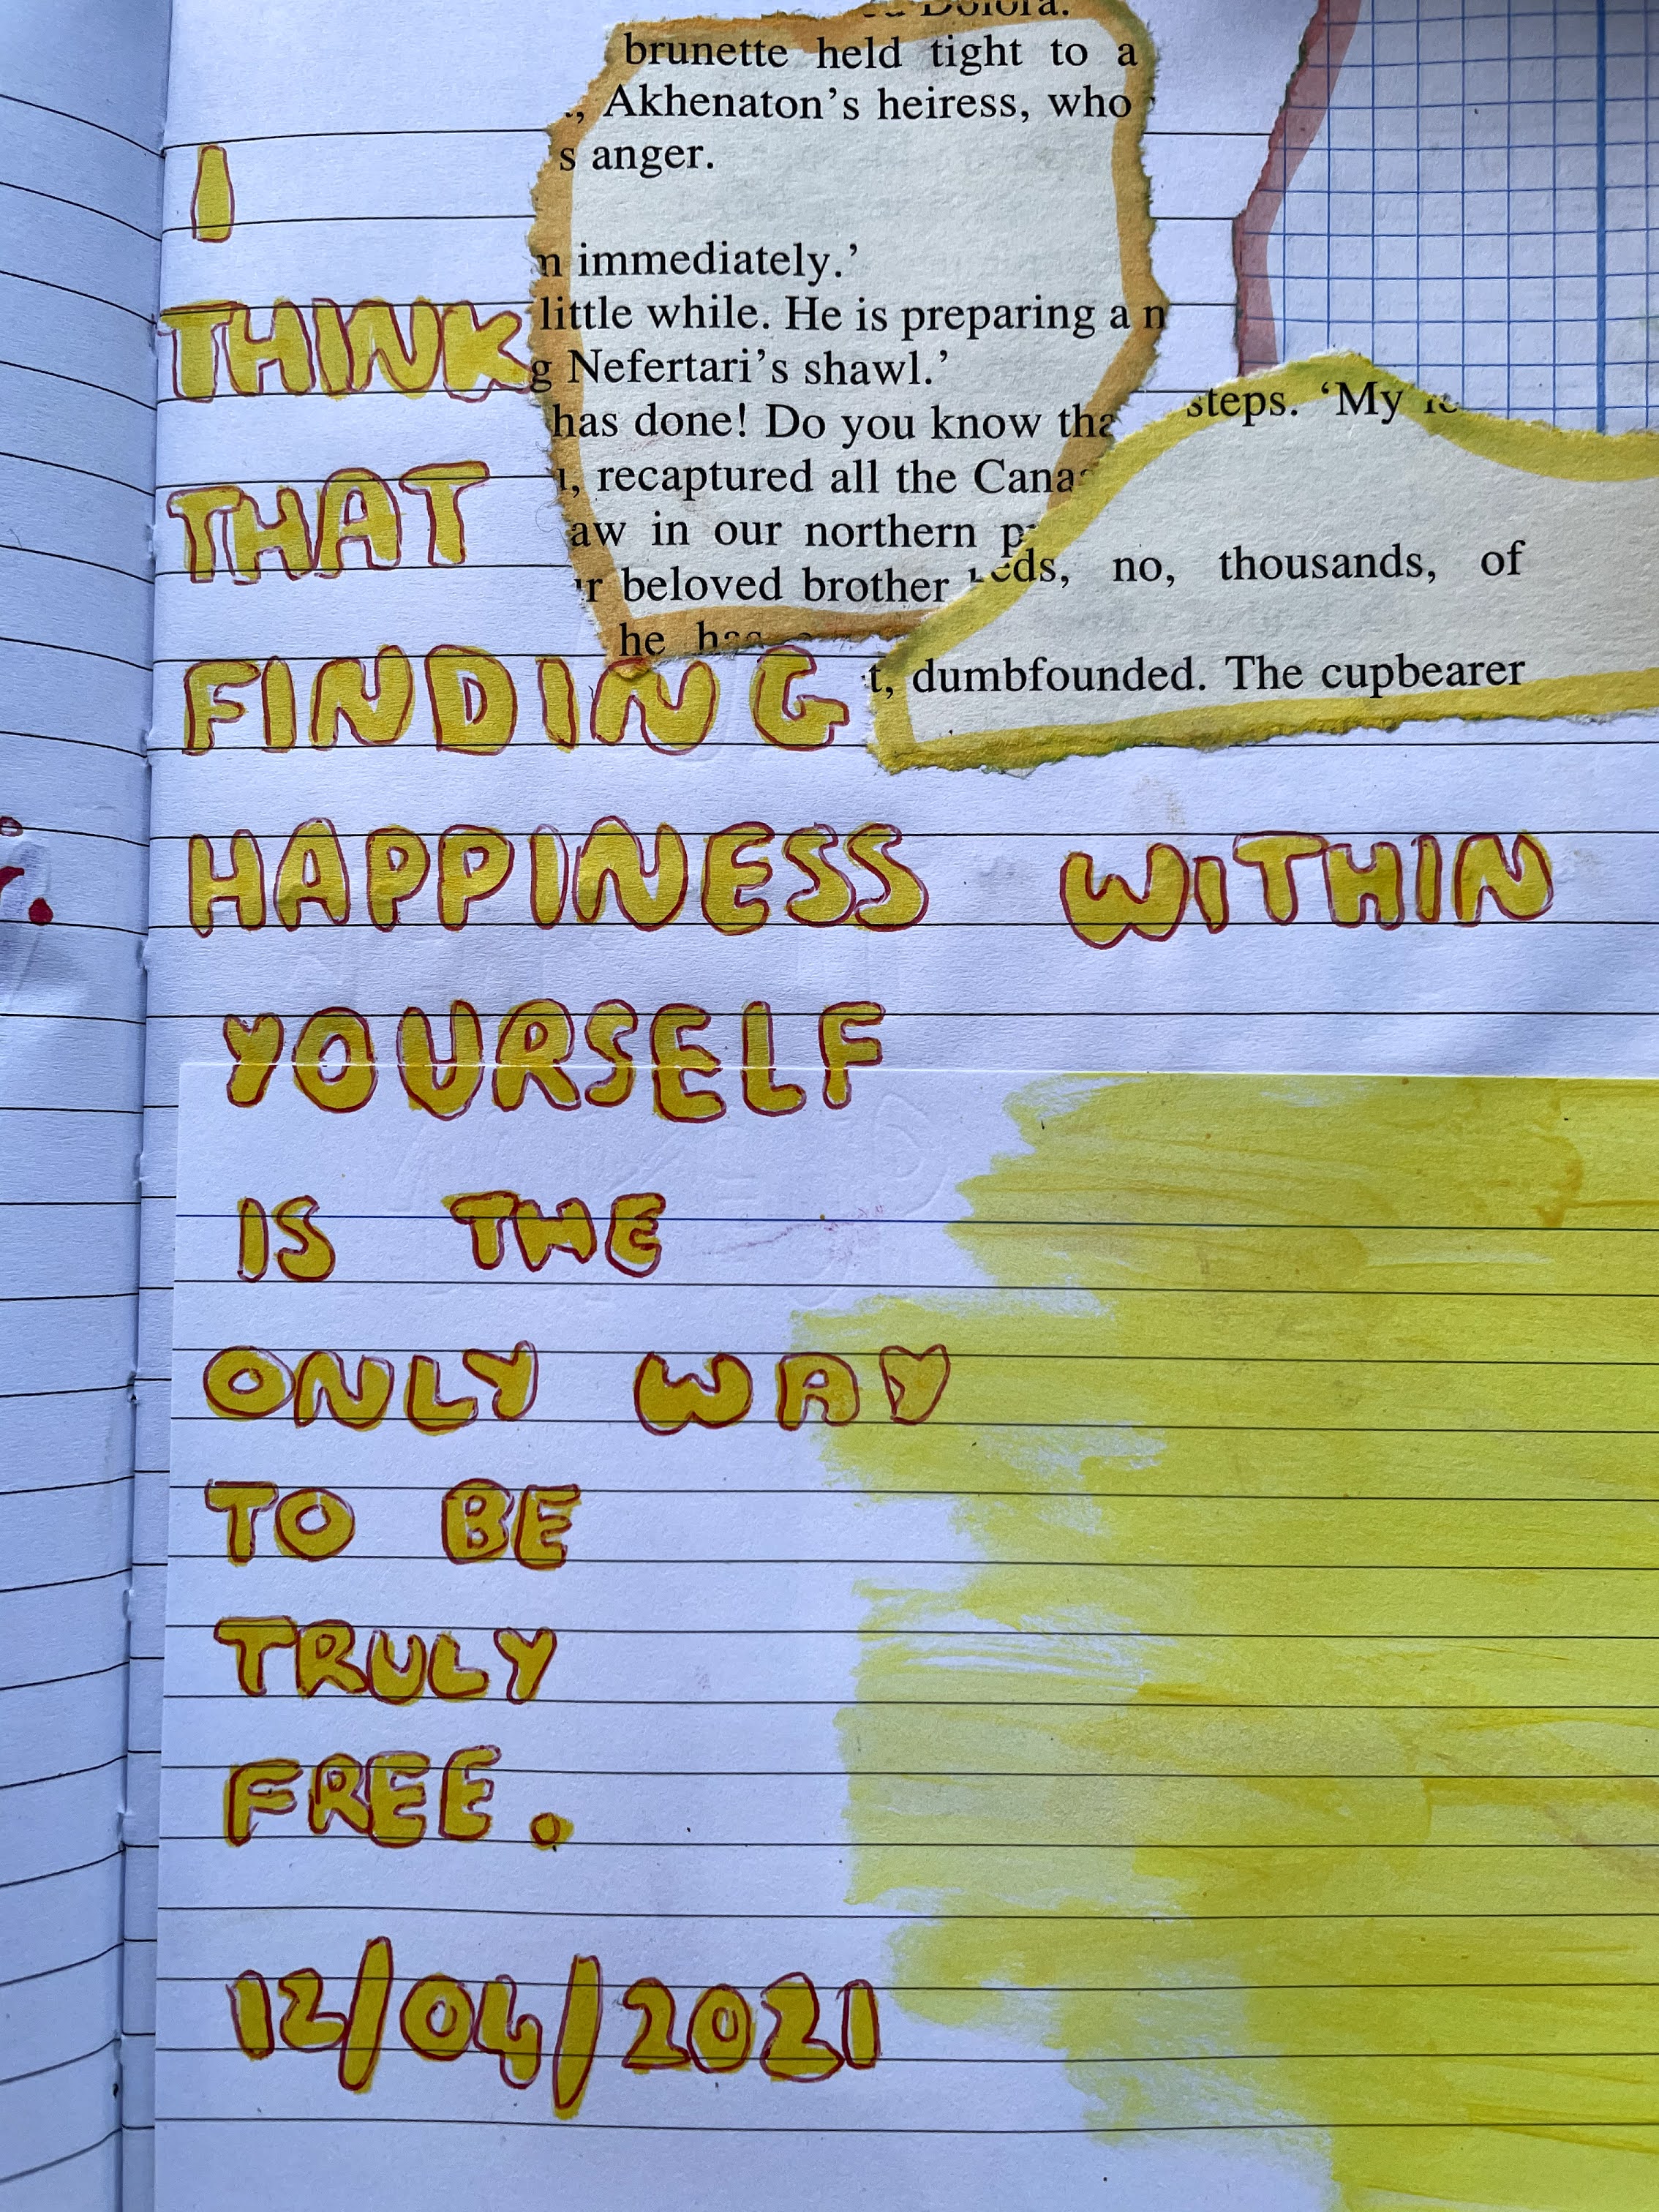 brunette held tight to a
Akhenaton's heiress, who
s anger.
immediately.'
little while. He is preparing a n
g Nefertari's shawl.'
has done! Do you know tha
recaptured all the Cana
aw in our northern p
r beloved brother
he has
steps. 'My
eds, no, thousands, of
t, dumbfounded. The cupbearer
I
THINK
THAT
FINDING
HAPPINESS WITHIN
YOURSELF
IS THE
ONLY WAY
TO BE
TRULY
FREE.
12/04/2021